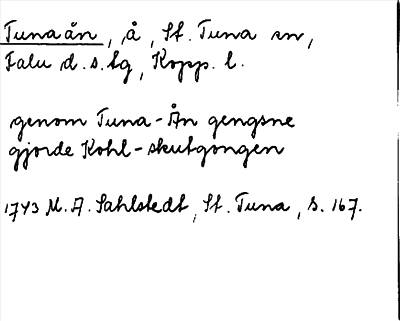 Tunaån, å, St. Tuna sn,
Falu d.s.tg, Kopp. l.
genom Tuna-Ån gengsne
gjorde Kohl-skutgongen
1743 M. A. Sahlstedt, St. Tuna, s. 167.